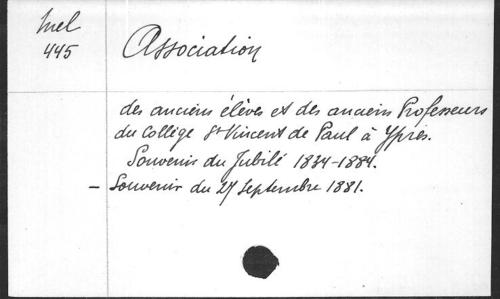 Mel
445
Association
des anciens élèves et des anciens Professeurs
du Collège St Vincent de Paul à Ypres.
Souvenir du Jubilé 1834-1884.
- Souvenir du 27 Septembre 1881.